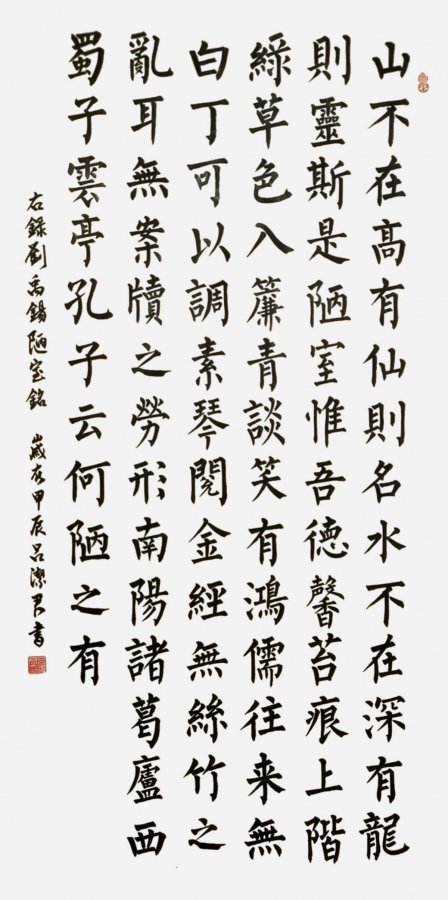 山不在髙有仙則名水不在深有龍
則靈斯是陋室惟吾德馨苔痕上階
綠草色入簾青談笑有鴻儒往来無
白丁可以調素琴閱金經無絲竹之
亂耳無案牘之勞形南陽諸葛廬西
蜀子雲亭孔子云何陋之有
右錄劉禹錫陋室銘 歲在甲辰呂潔君書